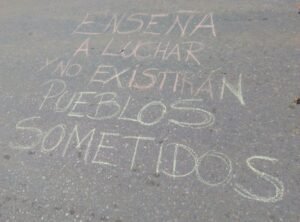 ENSEÑA
A LUCHAR
Y NO EXISTIRÁN
PUEBLOS
SOMETIDOS